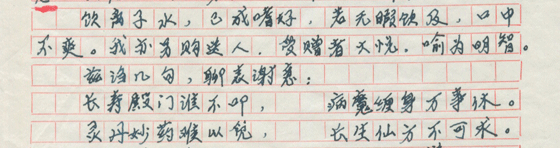 饮离子水，已成嗜好，若无暇饮及，口中
不爽。我亦另购送人，受赠者大悦，喻为明智。
兹诌几句，聊表谢意：
长寿殿门谁不叩，病魔缠身万事休。
灵丹妙药难以锐，长生仙方不可求。